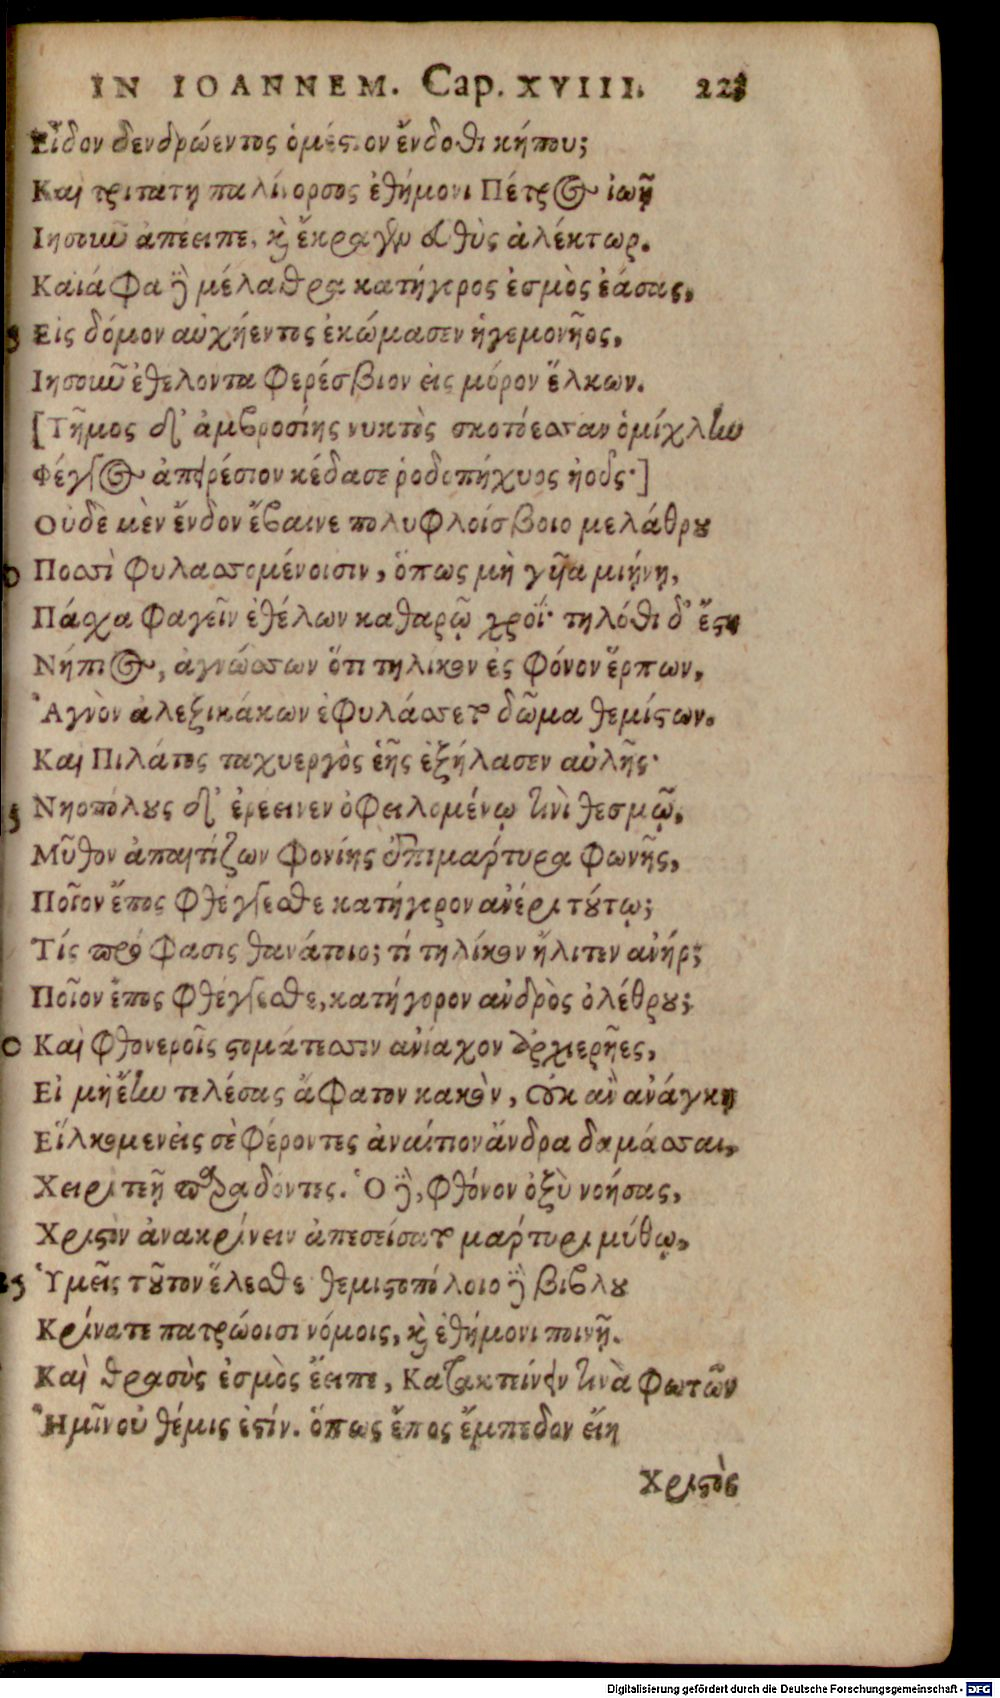 IN IOANNEM. Cap. XVIII. 223
Εἶδον δενδρώεντος ὁμέστιον ἔνδοθι κήπου;
Καὶ τριτάτῃ παλίνορσος ἐθήμονι Πέτρος ἰωῇ
Ιησοιῶ ἀπέειπε, κὶ ἔκραγεν εὐθὺς ἀλέκτωρ.
Καϊάφα ἢ μέλαθρα κατήγορος ἐσμὸς ἐάσας,
5 Εἰς δόμον αὐχήεντος ἐκώμασεν ἡγεμονῆος,
Ιησοιῶ ἐθέλοντα Φερέσβιον εἰς μόρον ἕλκων.
[Τῆμος δ' ἀμβροσίης νυκτὸς σκοτόεσσαν ὁμίχλιω
Φέγγος ἀπειρέσιον κέδασε ῥοδοπήχυος ἠοῦς·]
Οὐδὲ μὲν ἔνδον ἔβαινε πολυφλοίσβοιο μελάθρου
0 Ποσσὶ φυλασσομένοισιν, ὅπως μὴ γυῖα μιήνῃ,
Πάσχα φαγεῖν ἐθέλων καθαρῷ χροΐ· τηλόθι δ' ἔστη
Νήπιος, ἀγνώσσων ὅτι τηλίκον ἐς φόνον ἕρπων,
Ἁγνὸν ἀλεξικάκων ἐφυλάσσετο δῶμα θεμίστων.
Καὶ Πιλάτος ταχυεργὸς ἑῆς ἐξήλασεν αὐλῆς·
5 Νηοπόλους δ' ἐρέεινεν ὀφειλομένῳ τινὶ θεσμῷ,
Μῦθον ἀπαιτίζων φονίης ἐπιμάρτυρα φωνῆς,
Ποῖον ἔπος φθέγγεσθε κατήγορον ἀνέρι τούτῳ;
Τίς πρόφασις θανάτοιο; τί τηλίκον ἤλιτεν ἀνήρ;
Ποῖον ἔπος φθέγγεσθε, κατήγορον ἀνδρὸς ὀλέθρου;
0 Καὶ φθονεροῖς στομάτεσσιν ἀνίαχον ἀρχιερῆες,
Εἰ μὴ ἔιω τελέσας ἄφατον κακὸν, Οὐκ ἂν ἀνάγκῃ
Εἵλκομεν εἰς σὲ φέροντες ἀναίτιον ἄνδρα δαμάσσαι,
Χειρὶ τεῇ παραδόντες. Ὁ ἢ, φθόνον ὀξὺ νοήσας,
Χριστὸν ἀνακρίνειν ἀπεσείσατο μάρτυρι μύθῳ,
25 Ὑμεῖς τοῦτον ἕλεσθε θεμιστοπόλοιο ἢ βίβλου
Κρίνατε πατρώοισι νόμοις, κὶ ἐθήμονι ποινῇ.
Καὶ θρασὺς ἐσμὸς ἔειπε, Κατακτείνειν τινὰ φωτῶν
Ἡμῖν οὐ θέμις ἐστίν. ὅπως ἔπος ἔμπεδον εἴη
Χριστὸς
Digitalisierung gefördert durch die Deutsche Forschungsgemeinschaft - DFG